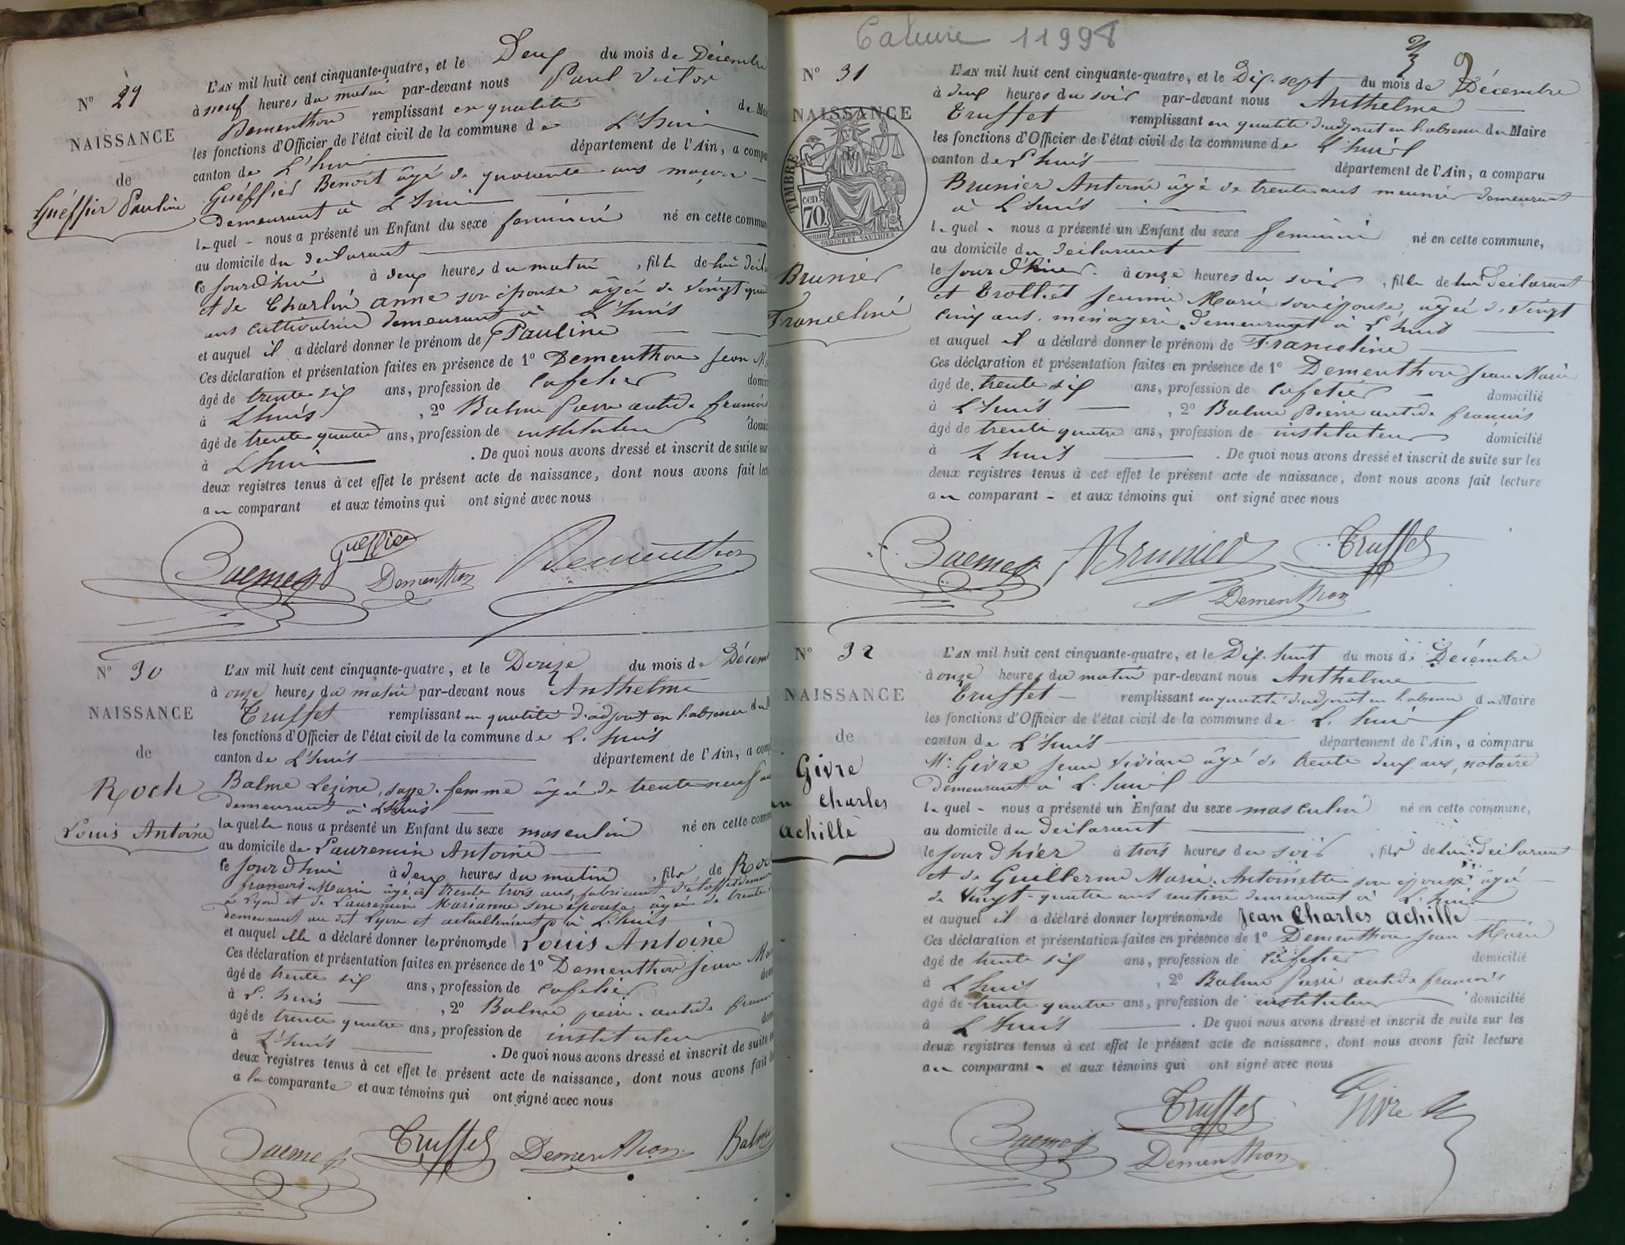 N° 29
NAISSANCE
de
Guéffier Pauline
L'AN mil huit cent cinquante-quatre, et le Deux du mois de Décembre
à neuf heures du matin par-devant nous Paul Victor
Dementhon remplissant en qualité de
les fonctions d'Officier de l'état civil de la commune de L'huis
canton de L'huis département de l'Ain, a
Guéffier Benoit âgé de quarante ans maçon
demeurant à L'huis
lequel nous a présenté un Enfant du sexe féminin né en cette
au domicile du déclarant
ce jourd'hui à deux heures du matin, fille de lui
et de Charliné anne son épouse âgée de vingt
ans cultivatrice demeurant à L'huis
et auquel il a déclaré donner le prénom de Pauline
Ces déclaration et présentation faites en présence de 1° Dementhon Jean
âgé de trente six ans, profession de cafetier
à L'huis, 2° Balme Pierre antide
âgé de trente quatre ans, profession de instituteur
à L'huis. De quoi nous avons dressé et inscrit de suite sur
deux registres tenus à cet effet le présent acte de naissance, dont nous avons fait
au comparant et aux témoins qui ont signé avec nous
Gueffier
Dementhon
Dementhon
N° 30
NAISSANCE
de
Roch
Louis Antoine
L'AN mil huit cent cinquante-quatre, et le Douze du mois de
à onze heures du matin par-devant nous Anthelme
Truffet remplissant en qualité d'adjoint en l'absence du
les fonctions d'Officier de l'état civil de la commune de L'huis
canton de L'huis département de l'Ain, a
Balme sage-femme âgée de trente neuf
demeurant à L'huis
laquelle nous a présenté un Enfant du sexe masculin né en cette
au domicile de Laurencin Antoine
ce jourd'hui à deux heures du matin, fils de
françois-Marie âgé de trente trois ans, fabricant d'étoffes
à Lyon et de Laurencin Marianne son épouse âgée de trente
demeurant au dit Lyon et actuellement à L'huis
et auquel elle a déclaré donner les prénoms de Louis Antoine
Ces déclaration et présentation faites en présence de 1° Dementhon Jean
âgé de trente six ans, profession de cafetier
à L'huis, 2° Balme pierre antide
âgé de trente quatre ans, profession de instituteur
à L'huis. De quoi nous avons dressé et inscrit de suite
deux registres tenus à cet effet le présent acte de naissance, dont nous avons fait
a la comparante et aux témoins qui ont signé avec nous
Truffet
Dementhon
11998
N° 31
NAISSANCE
TIMBRE
70
Brunier
Franceliné
L'AN mil huit cent cinquante-quatre, et le Dix-sept du mois de Décembre
à deux heures du soir par-devant nous Anthelme
Truffet remplissant en qualité d'adjoint en l'absence du Maire
les fonctions d'Officier de l'état civil de la commune de L'huis
canton de L'huis département de l'Ain, a comparu
Brunier Antoine âgé de trente ans meunier demeurant
à L'huis
lequel nous a présenté un Enfant du sexe féminin né en cette commune,
au domicile du déclarant
le jour d'hier à onze heures du soir, fille de lui déclarant
et Trolliet Jeanne Marie son épouse âgée de vingt
cinq ans, ménagère demeurant à L'huis
et auquel il a déclaré donner le prénom de Franceline
Ces déclaration et présentation faites en présence de 1° Dementhon Jean Marie
âgé de trente six ans, profession de cafetier domicilié
à L'huis, 2° Balme Pierre antide françois
âgé de trente quatre ans, profession de instituteur domicilié
à L'huis. De quoi nous avons dressé et inscrit de suite sur les
deux registres tenus à cet effet le présent acte de naissance, dont nous avons fait lecture
au comparant et aux témoins qui ont signé avec nous
Brunier
Truffet
Dementhon
N° 32
NAISSANCE
de
Givre
charles
achille
L'AN mil huit cent cinquante-quatre, et le Dix-huit du mois de Décembre
à onze heures du matin par-devant nous Anthelme
Truffet remplissant en qualité d'adjoint en l'absence du Maire
les fonctions d'Officier de l'état civil de la commune de L'huis
canton de L'huis département de l'Ain, a comparu
Mr Givre Jean Vivian âgé de trente deux ans, notaire
demeurant à L'huis
lequel nous a présenté un Enfant du sexe masculin né en cette commune,
au domicile du déclarant
le jour d'hier à trois heures du soir, fils de lui déclarant
et de Guillermin Marie Antoinette son épouse âgée
de vingt-quatre ans rentière demeurant à L'huis
et auquel il a déclaré donner les prénoms de Jean Charles achille
Ces déclaration et présentation faites en présence de 1° Dementhon Jean Marie
âgé de trente six ans, profession de cafetier domicilié
à L'huis, 2° Balme Pierre antide françois
âgé de trente quatre ans, profession de instituteur domicilié
à L'huis. De quoi nous avons dressé et inscrit de suite sur les
deux registres tenus à cet effet le présent acte de naissance, dont nous avons fait lecture
au comparant et aux témoins qui ont signé avec nous
Truffet
Givre
Dementhon